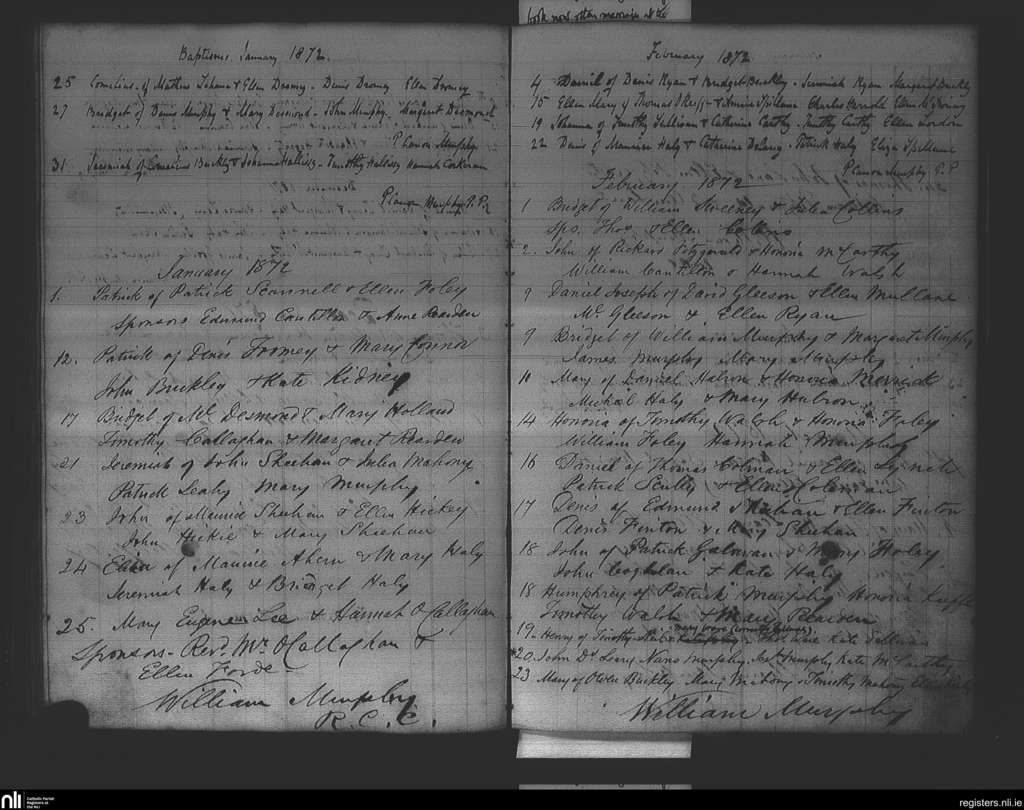 Baptisms January 1872.
25 Cornelius of Mathew & Ellen Droney - Denis Droney Ellen Droney
27 Bridget of Denis Murphy & Mary Desmond - John Murphy - Margaret Desmond
Murphy
31. Jeremiah of Cornelius Buckley & Johanna - Timothy Hannah Corkeran
Murphy P.P.
January 1872
1. Patrick of Patrick Scannell & Ellen Foley
Sponsors Edmund & Anne Rearden
12. Patrick of Denis Toomey & Mary Connor
John Buckley & Kate Kidney
17 Bridget of Ml Desmond & Mary Holland
Timothy Callaghan & Margaret Rearden
21 Jeremiah of John Sheehan & Julia Mahony
Patrick Leahy Mary Murphy
23 John of Maurice Sheehan & Ellen Hickey
John Hickie & Mary Sheehan
24 of Maurice Ahern & Mary Haly
Jeremiah Haly & Bridget Haly
25. Mary Eugene Lee & Hannah O Callaghan
Sponsors - Revd. Mr. O'Callaghan &
Ellen Forde
William Murphy
R. C. C.
book now other marriage at the
February 1872
4 Daniel of Denis Ryan & Bridget Buckley - Jeremiah Ryan Margaret Buckley
15 Ellen Mary of Thomas O'Keeffe & Annie Spillane Charles Harold Ellen
19 Johanna of Timothy Sullivan & Catherine Carthy - Timothy Carthy Ellen
22 Denis of Maurice Haly & Catherine - Patrick Haly Eliza Spillane
Murphy P.P
February 1872
1 Bridget of William Sweeney & Julia Collins
Sps. Thos. & Ellen Collins
2. John of Richard Fitzgerald & Honoria McCarthy
William & Hannah Walsh
9 Daniel Joseph of David Gleeson & Ellen Mullane
Mr. Gleeson & Ellen Ryan
9 Bridget of William Murphy & Margaret Murphy
James Murphy Mary Murphy
10 Mary of Daniel & Honoria
Haly & Mary
14 Honoria of Timothy Walsh & Honoria Foley
William Foley Hannah Murphy
16 Daniel of Thomas Colman & Ellen Lynch
Patrick Scully & Ellen Coleman
17 Denis of Edmund Sheehan & Ellen Fenton
Denis Fenton & Mary Sheehan
18 John of Patrick & Mary Foley
John Coghlan & Kate Haly
18 Humphrey of Patrick Murphy Honoria
Timothy Walsh & Mary
19. Henry of Timothy Kate Sullivan
20. John Murphy, Murphy Kate McCarthy
23 Mary of Owen Buckley Mary Mahony Timothy Mahony
William Murphy
nli Catholic Parish Registers at the NLI
registers.nli.ie